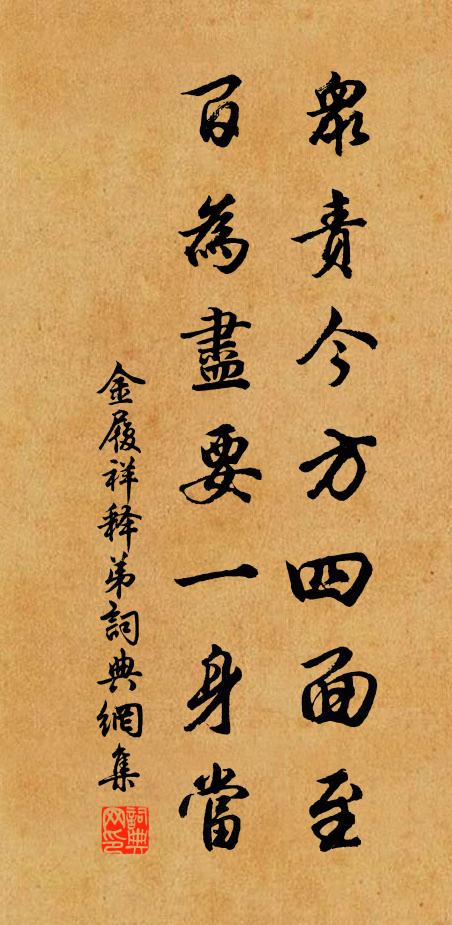 眾責今方四面至
百為盡要一身當
金履祥释弟詞典網集
詞典网印